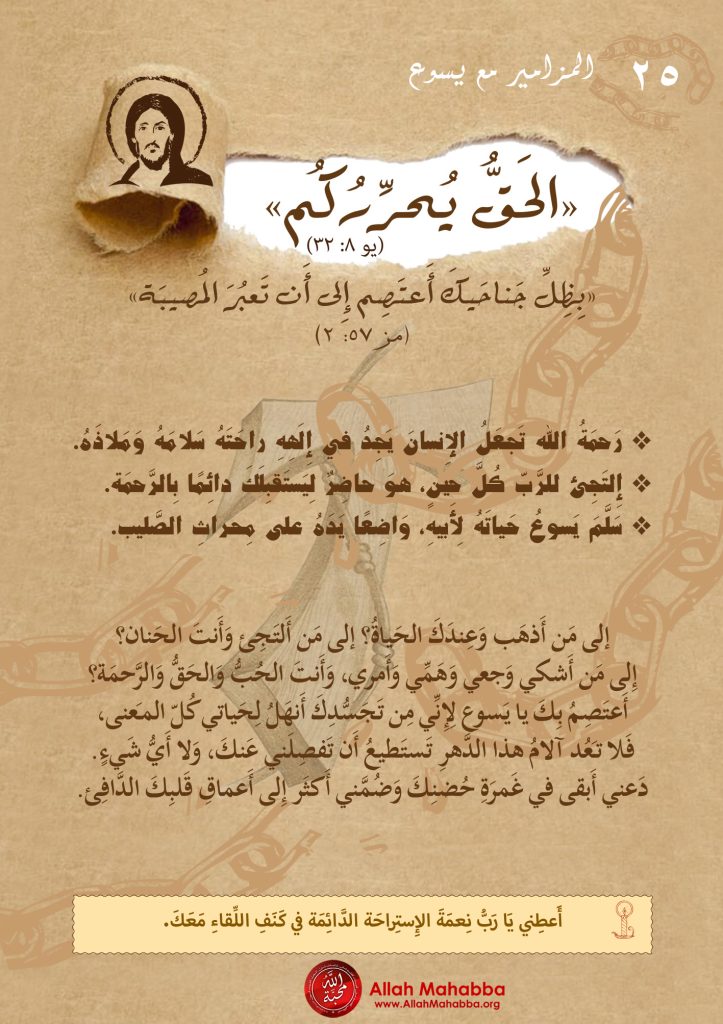 ٢٥ المزامير مع يسوع
«الحَقُّ يُحرِّرُكُم»
(يو ٨: ٣٢)
«بِظِلِّ جَناحَيكَ أَعتَصِم إِلى أَن تَعبُرَ المُصيبَة»
(مز ٥٧: ٢)
❖ رَحمَةُ الله تَجعَلُ الإنسانَ يَجدُ في إلَهِهِ راحَتَهُ سَلامَهُ وَمَلاذَهُ.
❖ إِلتَجِئ للرَّبّ كُلَّ حَينٍ، هو حاضِرٌ لِيَستَقبِلَكَ دائِمًا بِالرَّحمَة.
❖ سَلَّمَ يَسوعُ حَياتَهُ لِأَبيهِ، وَاضِعًا يَدَهُ على مِحراثِ الصَّليب.
إلى مَن أَذهَب وَعِندَكَ الحَياةُ؟ إلى مَن أَلتَجِئ وَأَنتَ الحَنان؟
إِلى مَن أَشكي وَجعي وَهَمِّي وَأَمري، وَأَنتَ الحُبُّ وَالحَقُّ وَالرَّحمَة؟
أَعتَصِمُ بِكَ يا يَسوع لِإنِّي مِن تَجَسُّدِكَ أَنهَلُ لِحَياتي كُلّ المعَنى،
فَلا تَعُد آلامُ هذا الدَّهرِ تَستَطيعُ أَن تَفصِلَني عَنكَ، وَلا أَيُّ شَيءٍ.
دَعني أَبقى في غَمرَةِ حُضنِكَ وَضُمَّني أَكثَر إلى أَعماقِ قَلبِكَ الدَّافِئ.
أَعطِني يَا رَبُّ نِعمَةَ الإِستِراحَة الدَّائِمَة في كَنَفِ اللِّقاءِ مَعَكَ.
الله محبّة
Allah Mahabba
www.AllahMahabba.org